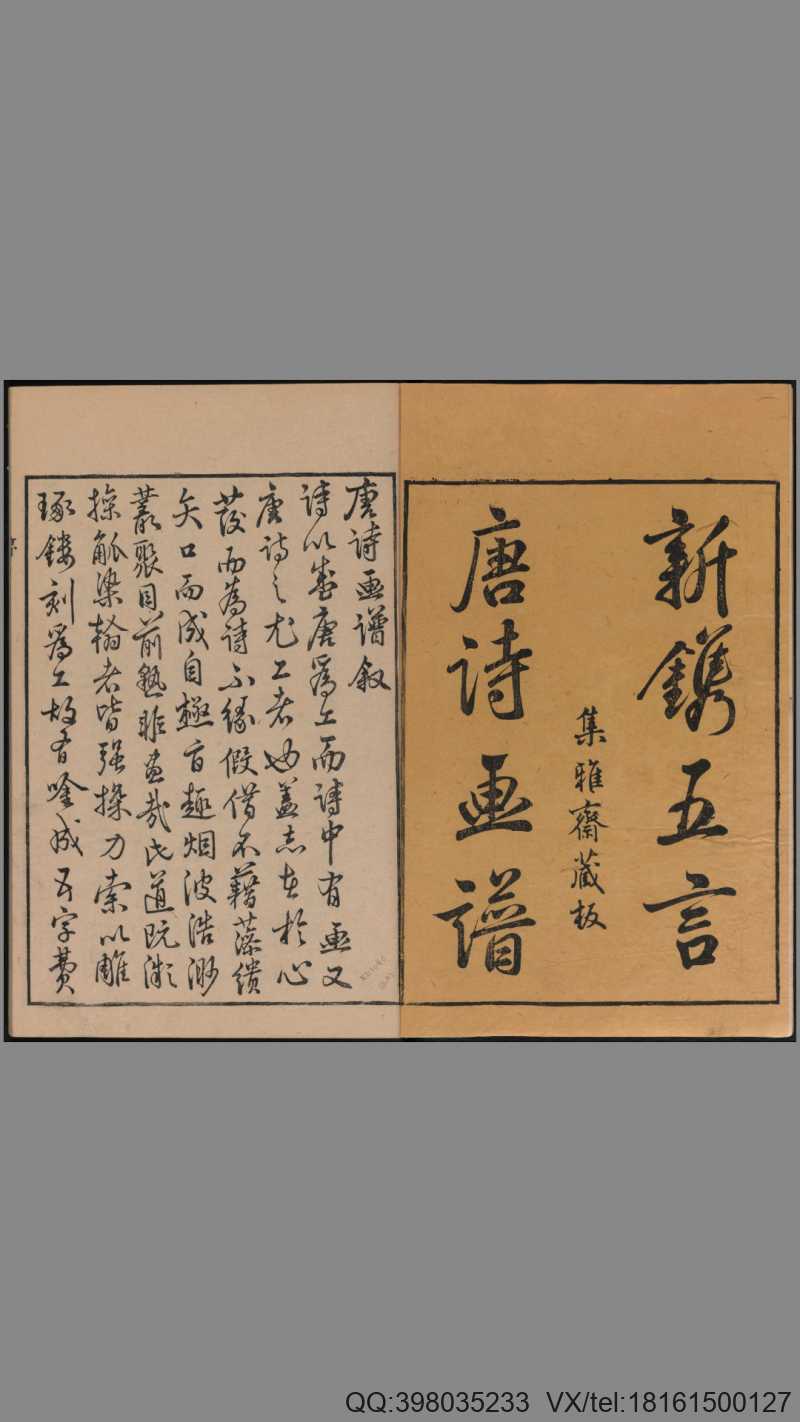 新鐫五言
集雅齋藏板
唐詩畫譜
唐詩畫譜叙
詩以盛唐爲工而詩中有畫又
唐詩之尤工者也蓋志在於心
發而為詩不緣假借不藉藻繢
矢口而成自極旨趣烟波浩渺
叢聚目前孰非畫哉氐道既漓
操觚染翰者皆强操刀索以雕
琢鏤刻爲工故有唫成五字費
QQ:398035233 VX/tel:18161500127